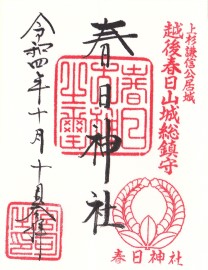 上杉謙信公居城
越後春日山城総鎮守
春日神社
令和四年十月十日参拝
春日神社